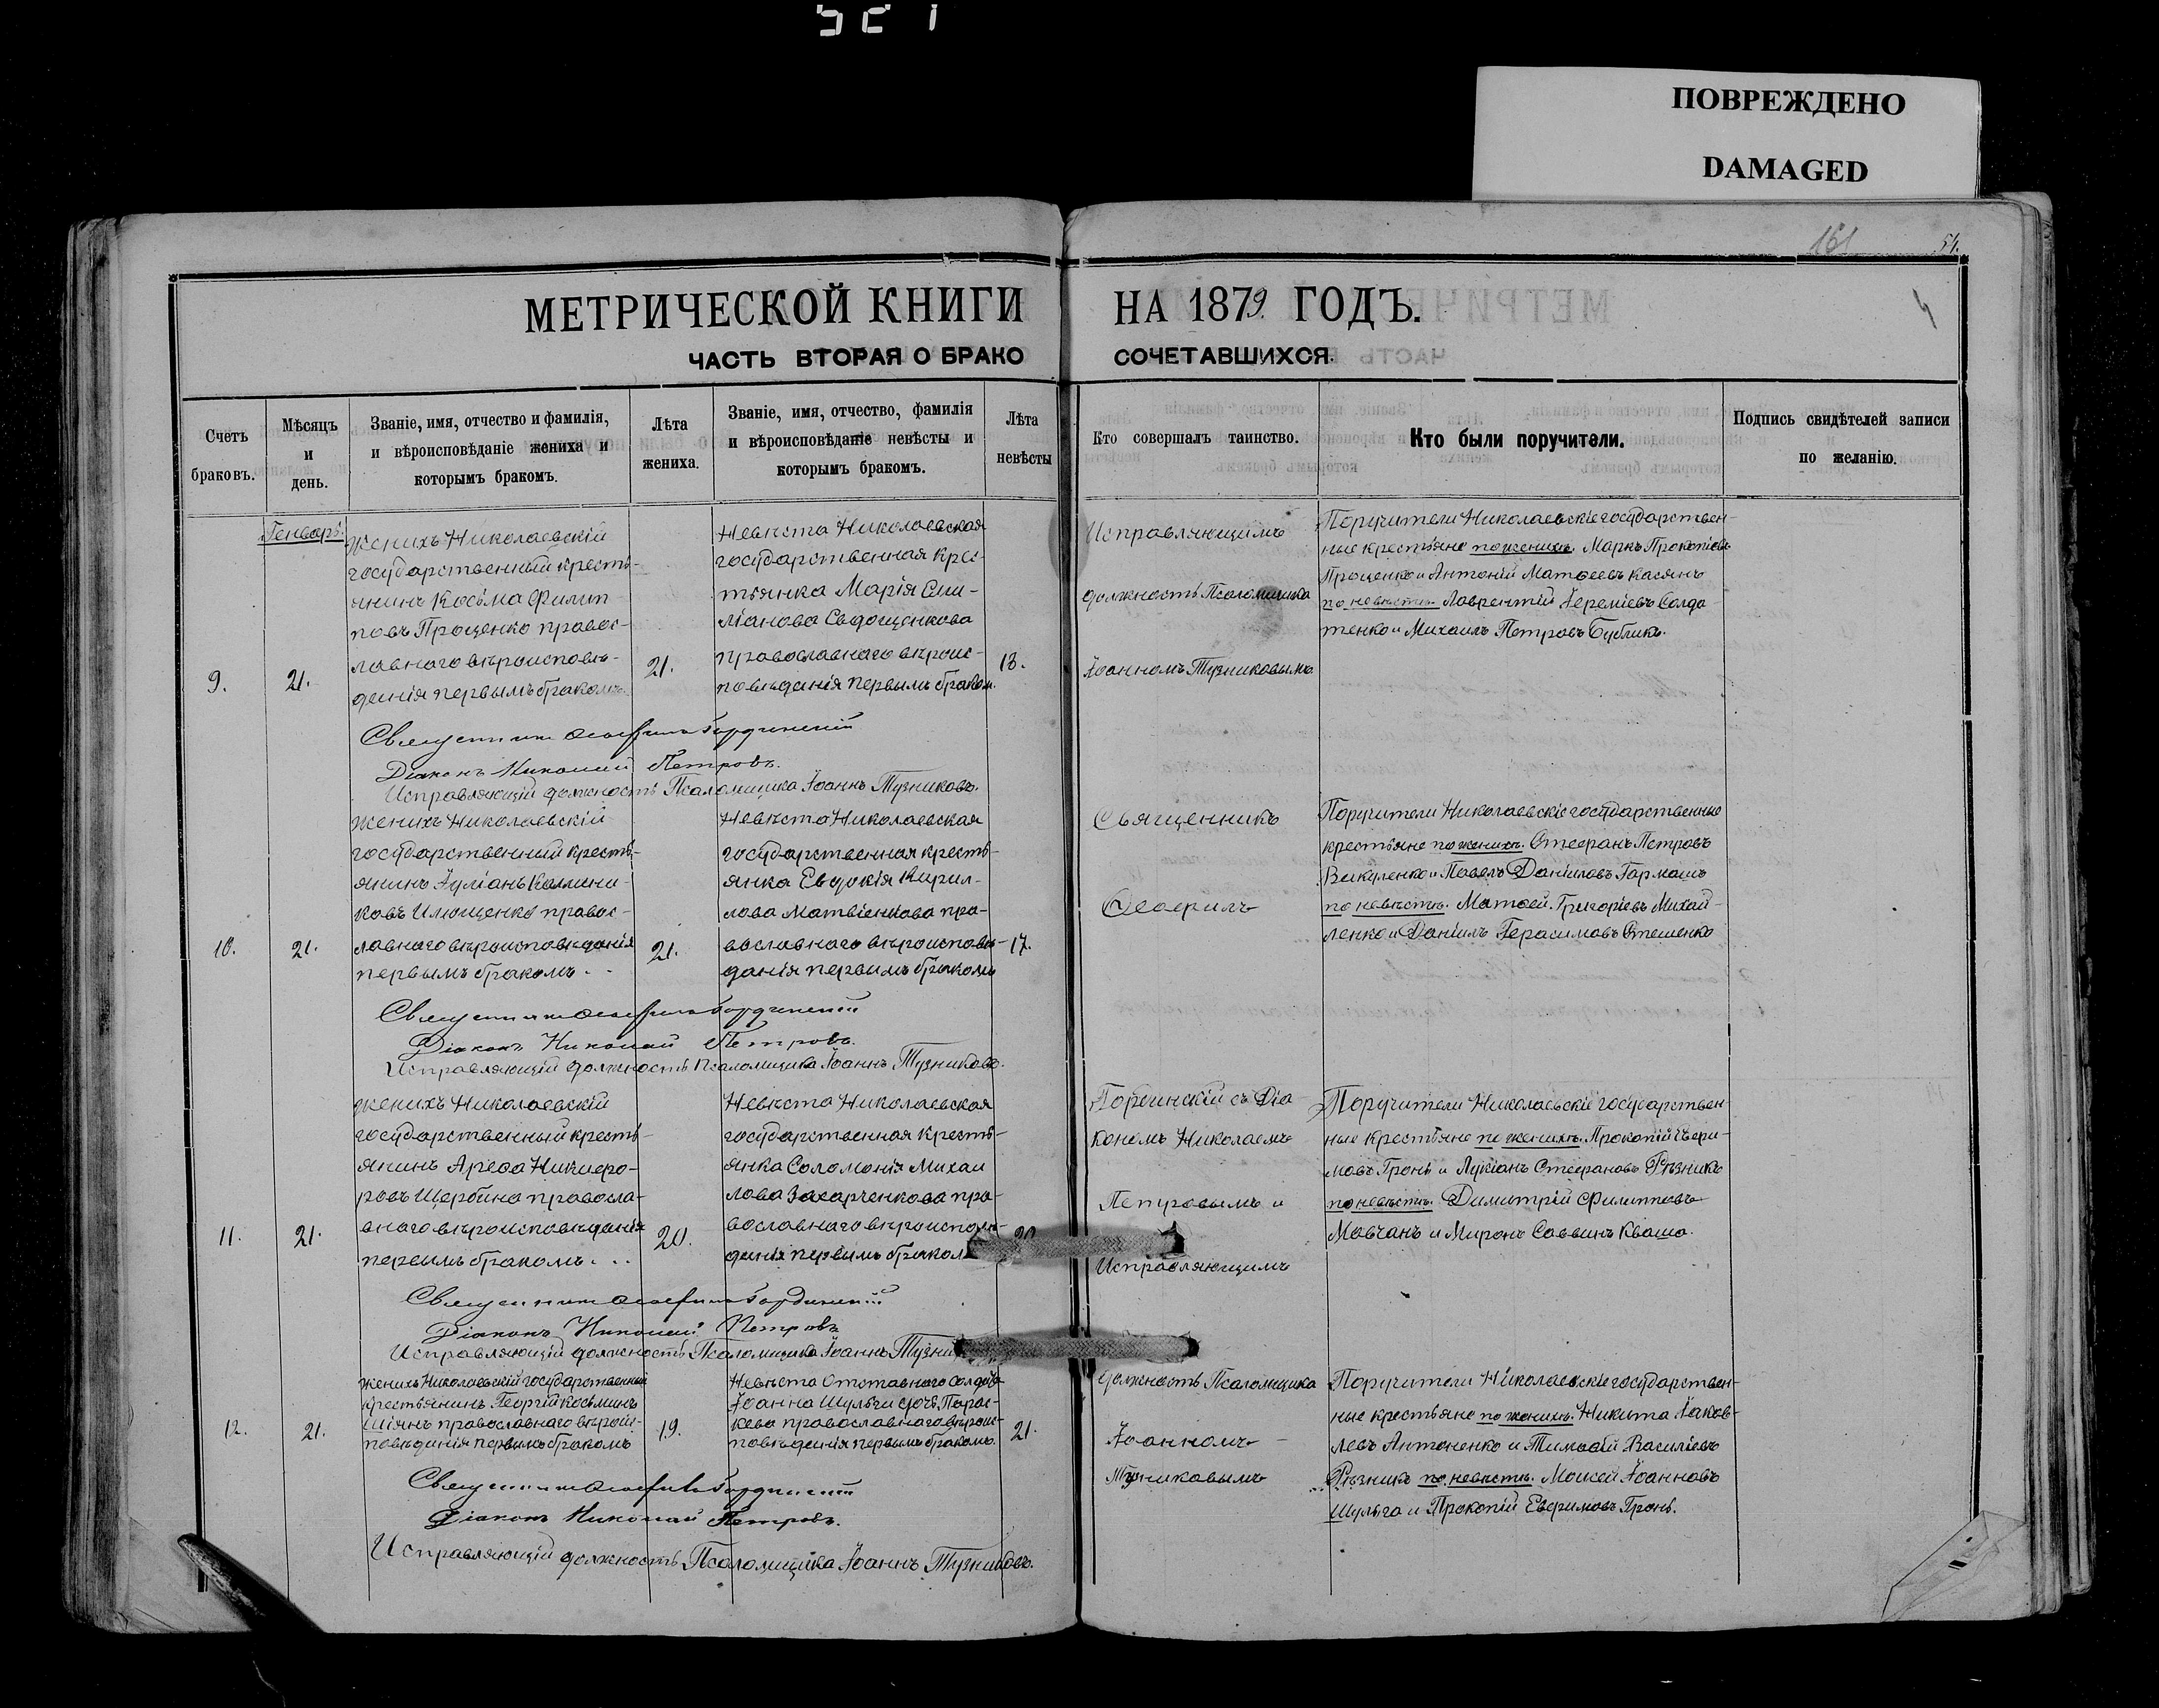 ПОВРЕЖДЕНО
DAMAGED
161
51.
МЕТРИЧЕСКОЙ КНИГИ НА 1879. ГОДЪ.
ЧАСТЬ ВТОРАЯ О БРАКОСОЧЕТАВШИХСЯ.
Счетъ браковъ.
Мѣсяцъ и день.
Званіе, имя, отчество и фамилія,
и вѣроисповѣданіе жениха и
которымъ бракомъ.
Лѣта
жениха.
Званіе, имя, отчество, фамилія
и вѣроисповѣданіе невѣсты и
которымъ бракомъ.
Лѣта
невѣсты
Кто совершалъ таинство.
Кто были поручители.
Подпись свидѣтелей записи
по желанію.
Генварь.
9.
21.
Женихъ Николаевскій
государственный кресть-
янинъ Косьма Филип-
повъ Проценко правос-
лавнаго вѣроисповѣ-
данія первымъ бракомъ.
21.
Невѣста Николаевская
государственная крес-
тьянка Марія Еми-
ліанова Евдощенкова
православнаго вѣроис-
повѣданія первымъ браком.
18.
Исправляющимъ
должность Псаломщика
Іоанномъ Тузниковымъ.
Поручители Николаевскіе государствен-
ные крестьяне по женихѣ. Маркъ Прокопіевъ
Проценко и Антоній Матѳеевъ Касянъ
по невѣстѣ. Лаврентій Іереміевъ Солда-
тенко и Михаилъ Петровъ Бубликъ.
Священникъ Ѳеофилъ Бордзинскій
Діаконъ Николай Петровъ.
Исправляющій должность Псаломщика Іоаннъ Тузниковъ.
10.
21.
Женихъ Николаевскій
государственный кресть-
янинъ Іуліанъ Каллини-
ковъ Илющенко правос-
лавнаго вѣроисповѣданія
первымъ бракомъ.
21.
Невѣста Николаевская
государственная кресть-
янка Евдокія Кирил-
лова Матвіенкова пра-
вославнаго вѣроисповѣ-
данія первымъ бракомъ
17.
Священникъ
Ѳеофилъ
Поручители Николаевскіе государственные
крестьяне по женихѣ. Стефанъ Петровъ
Викуленко и Павелъ Даніиловъ Гармашъ
по невѣстѣ. Матѳей Григоріевъ Михай-
ленко и Даніилъ Герасимовъ Стешенко
Священникъ Ѳеофилъ Бордзинскій
Діаконъ Николай Петровъ.
Исправляющій должность Псаломщика Іоаннъ Тузниковъ.
11.
21.
Женихъ Николаевскій
государственный кресть-
янинъ Арефа Никифо-
ровъ Щербина правосла-
внаго вѣроисповѣданія
первымъ бракомъ. . .
20.
Невѣста Николаевская
государственная кресть-
янка Соломонія Михаи
лова Захарченкова пра-
вославнаго вѣроисповѣ-
данія первымъ бракомъ
20
съ Діа-
кономъ Николаемъ
Петровымъ и
Исправляющимъ
Поручители Николаевскіе государствен-
ные крестьяне по женихѣ. Прокопій Ефри-
мовъ Гронь и Лукіанъ Стефановъ Рѣзникъ
по невѣстѣ. Димитрій Филипповъ
Мовчанъ и Миронъ Саввинъ Кваша.
Священникъ Ѳеофилъ Бордзинскій
Діаконъ Николай Петровъ
Исправляющій должность Псаломщика Іоаннъ Тузни
12.
21.
Женихъ Николаевскій государственный
крестьянинъ Георгій Косьминъ
Шіянъ православнаго вѣроис-
повѣданія первымъ бракомъ
19.
Невѣста Отставнаго Солдата
Іоанна Шульги дочь Парас-
кева православнаго вѣроис-
повѣданія первымъ бракомъ.
21.
должность Псаломщика
Іоанномъ
Тузниковымъ
Поручители Николаевскіе государствен-
ные крестьяне по женихѣ. Никита Іаков-
левъ Антоненко и Тимоѳій Василіевъ
Рѣзникъ по невѣстѣ. Моисей Іоанновъ
Шульга и Прокопій Ефримовъ Гронь.
Священникъ Ѳеофилъ Бордзинскій
Діаконъ Николай Петровъ.
Исправляющій должность Псаломщика Іоаннъ Тузниковъ.